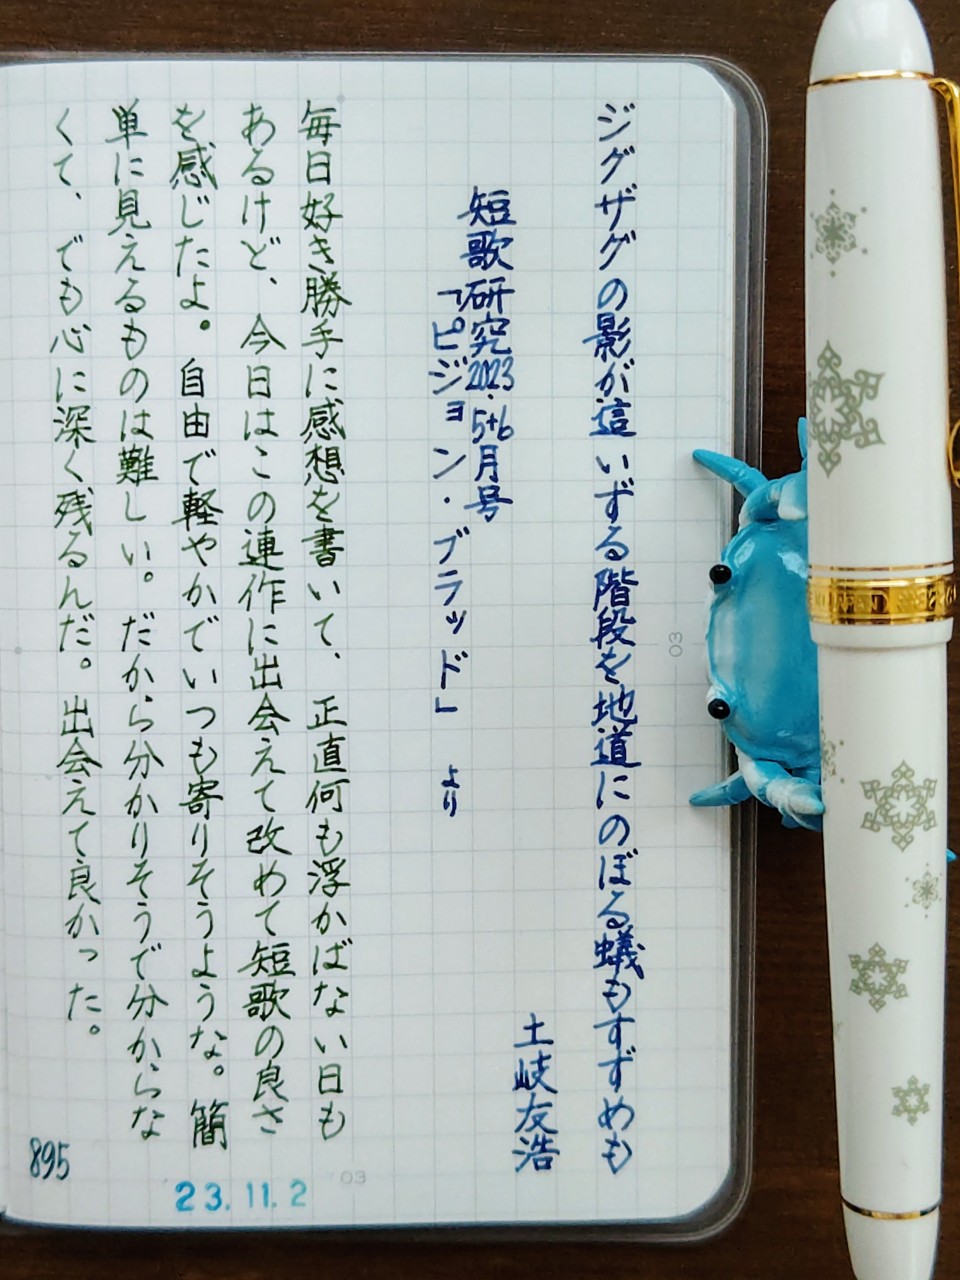 ジグザグの影が這いずる階段を地道にのぼる蟻もすずめも
土岐友浩
短歌研究2023.5+6月号
「ピジョン・ブラッド」より
毎日好き勝手に感想を書いて、正直何も浮かばない日も
あるけど、今日はこの連作に出会えて改めて短歌の良さ
を感じたよ。自由で軽やかでいつも寄りそうような。簡
単に見えるものは難しい。だから分かりそうで分からな
くて、でも心に深く残るんだ。出会えて良かった。
895
23.11.2
03
03